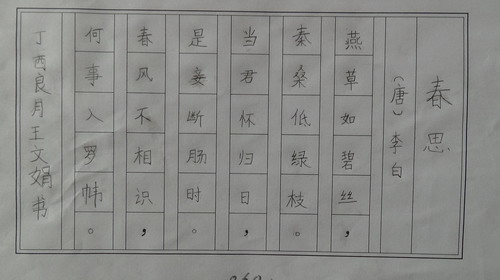 春思
(唐)李白
燕草如碧丝,
秦桑低绿枝。
当君怀归日,
是妾断肠时。
春风不相识,
何事入罗帏。
丁酉良月王文娟书